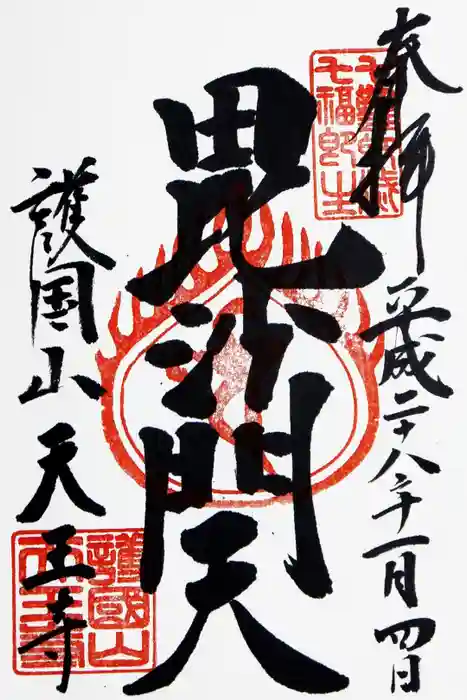 奉拝
平成二十八年十一月四日
七難即滅
七福即生
毘沙門天
護国山
天王寺
護國山
天王寺